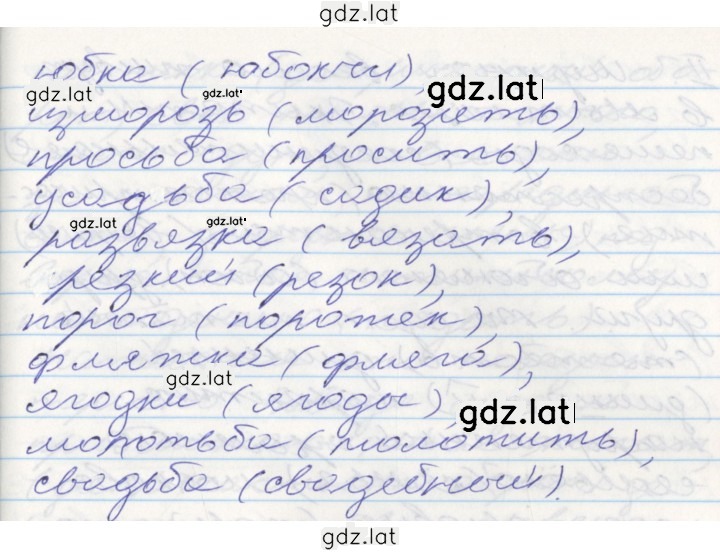 gdz.lat
юбка (юбочки)
gdz.lat gdz.lat gdz.lat
изморозь (морозить),
просьба (просить),
усадьба (садик),
gdz.lat gdz.lat
развязка (вязать),
резкий (резок),
порог (порожек),
фляжка (фляга),
gdz.lat
ягодки (ягоды)
gdz.lat
молотьба (молотить),
свадьба (свадебный).
gdz.lat